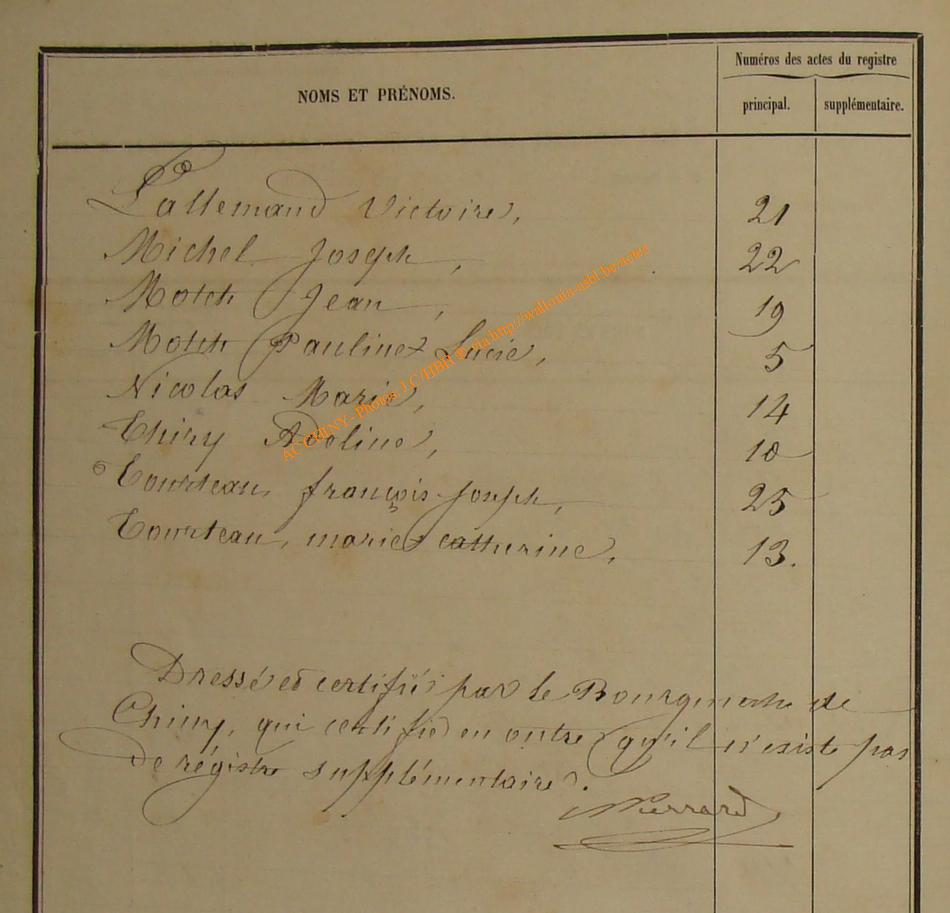 Numéros des actes du registre
NOMS ET PRÉNOMS.
principal. supplémentaire.
Lallemand Victoire, 21
Michel Joseph, 22
Motch Jean, 19
Motch Pauline Lucie, 5
Nicolas Marie, 14
Thiry Adeline, 10
Tourteau, françois-Joseph, 25
Tourteau, marie catherine, 13.
Dressé et certifié par le Bourgmestre de
Chiny, qui certifie en outre qu'il n'existe pas
de régistre supplémentaire.
Pierrard